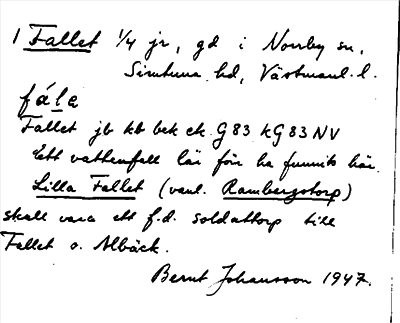 1 Fallet 1/4 jr, gd i Norrby sn,
Simtuna hd, Västmanl. l.
fála
Fallet jb kb bek ek. G83 kG83NV
Ett vattenfall lär förr ha funnits här.
Lilla Fallet (vanl. Rambergstorp)
skall vara ett f.d. soldattorp till
Fallet o. Albäck.
Bernt Johansson 1947.